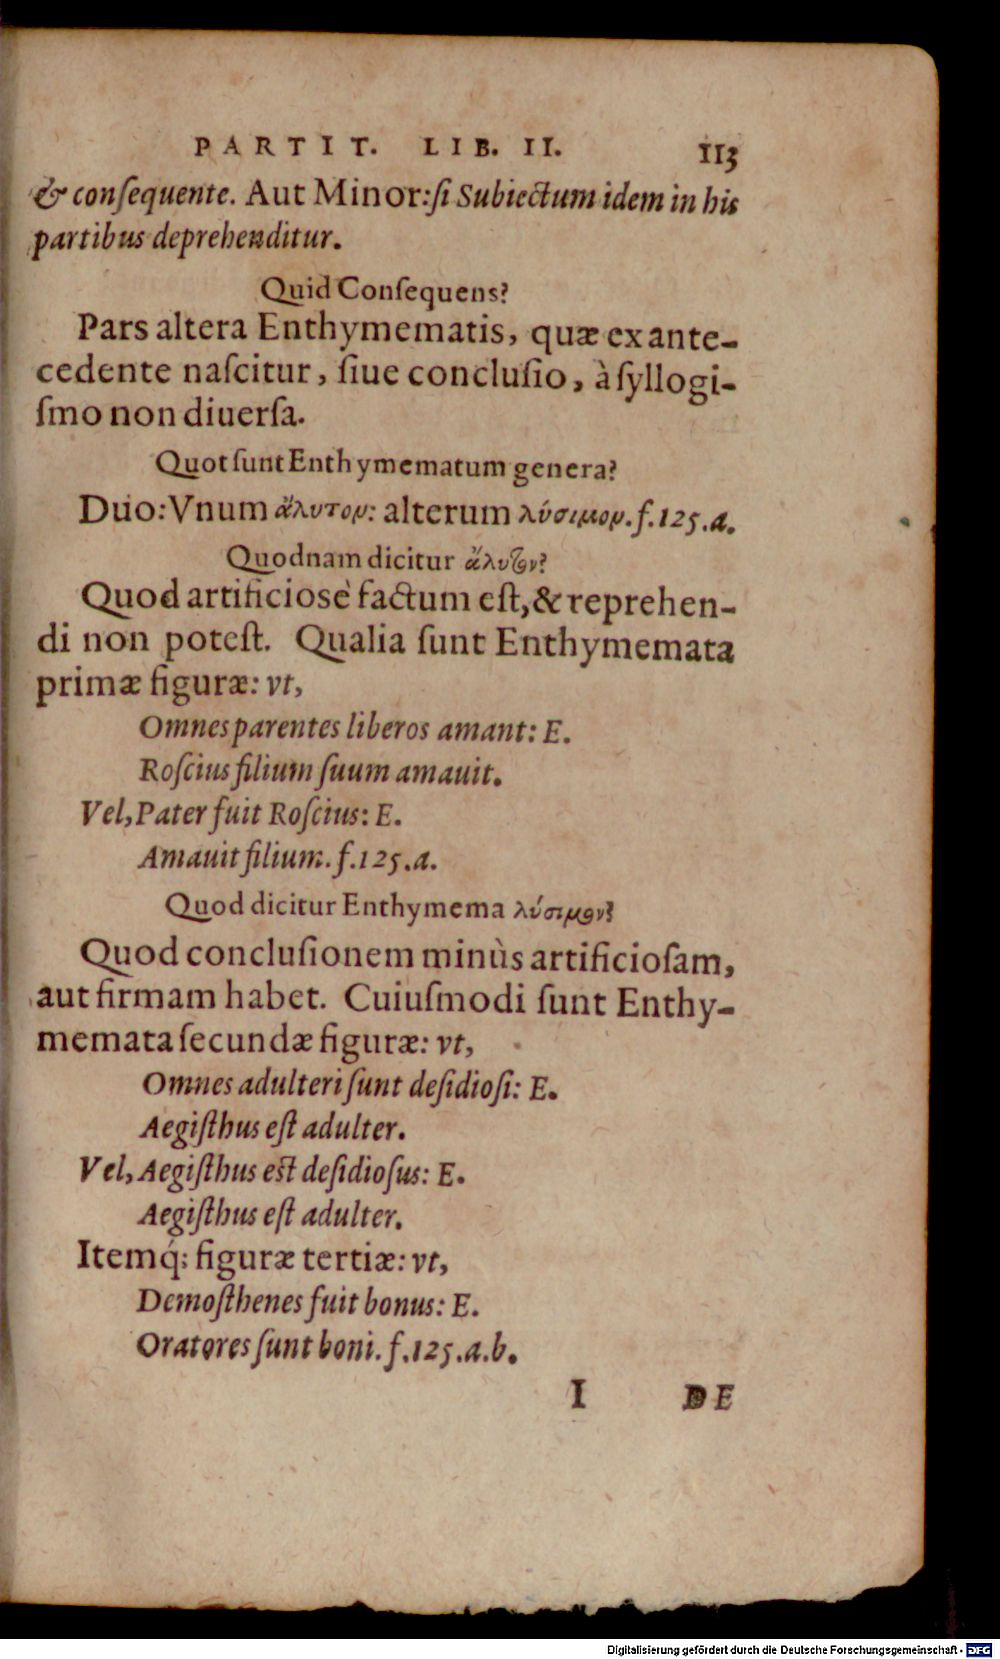 PARTIT. LIB. II. 113
& conſequente. Aut Minor: ſi Subiectum idem in his
partibus deprehenditur.
Quid Conſequens?
Pars altera Enthymematis, quæ ex ante-
cedente naſcitur, ſiue concluſio, à ſyllogi-
ſmo non diuerſa.
Quot ſunt Enthymematum genera?
Duo: Vnum ἄλυτον: alterum λύσιμον. f.125.a.
Quodnam dicitur ἄλυτον?
Quod artificiosè factum eſt, & reprehen-
di non poteſt. Qualia ſunt Enthymemata
primæ figuræ: vt,
Omnes parentes liberos amant: E.
Roſcius filium ſuum amauit.
Vel, Pater fuit Roſcius: E.
Amauit filium. f.125.a.
Quod dicitur Enthymema λύσιμον?
Quod concluſionem minùs artificioſam,
aut firmam habet. Cuiuſmodi ſunt Enthy-
memata ſecundæ figuræ: vt,
Omnes adulteri ſunt deſidioſi: E.
Aegiſthus eſt adulter.
Vel, Aegiſthus eſt deſidioſus: E.
Aegiſthus eſt adulter.
Itemq́; figuræ tertiæ: vt,
Demoſthenes fuit bonus: E.
Oratores ſunt boni. f.125.a.b.
I DE
Digitalisierung gefördert durch die Deutsche Forschungsgemeinschaft - DFG